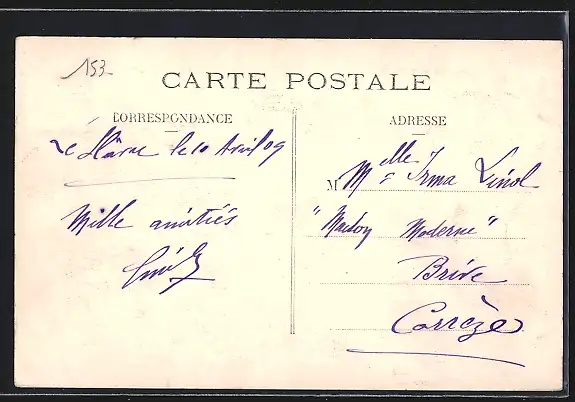 153
CARTE POSTALE
CORRESPONDANCE
Le Hâvre le 10 Avril 09
Mille amitiés
ADRESSE
M Melle Irma
" Moderne "
Brive
Corrèze